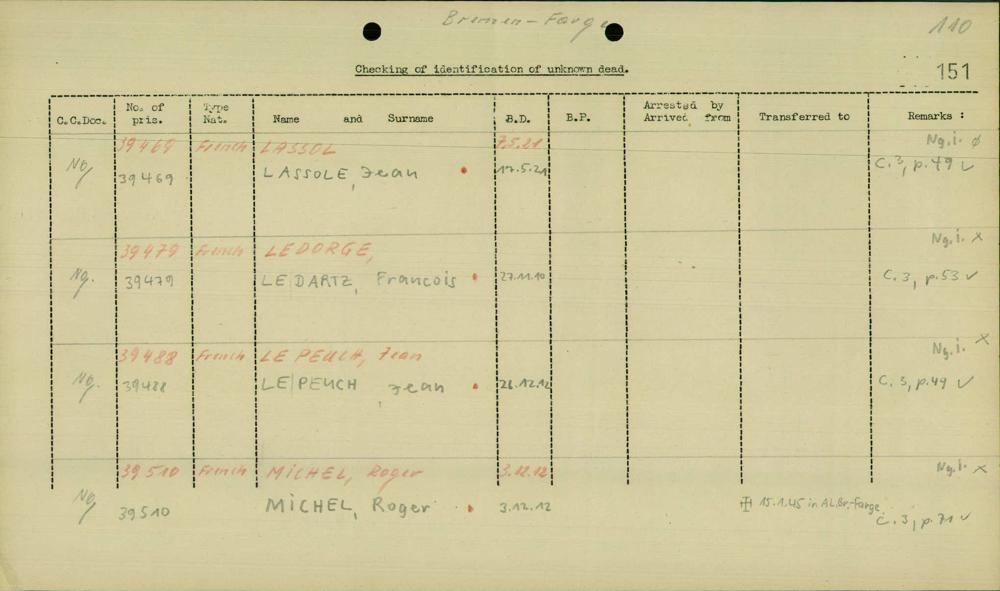 Bremen-Farge
110
Checking of identification of unknown dead.
151
C.C.Doc.
No. of pris.
Type Nat.
Name and Surname
B.D.
B.P.
Arrested by
Arrived from
Transferred to
Remarks :
39469 French LASSOL 7.5.21 Ng.i. ø
Ng 39469 LASSOLE, Jean 17.5.21 C.3, p.49 ✓
39479 French LEDORGE, Ng.i. x
Ng. 39479 LE DARTZ, Francois 27.11.10 C.3, p.53 ✓
39488 French LE PEUCH, Jean Ng.i. x
Ng. 39488 LE PEUCH Jean 26.12.12 C.3, p.49 ✓
39510 French MICHEL, Roger 3.12.12 Ng.i. x
Ng 39510 MICHEL, Roger 3.12.12 15.1.45 in AL.Br.-Farge
C.3, p.71 ✓